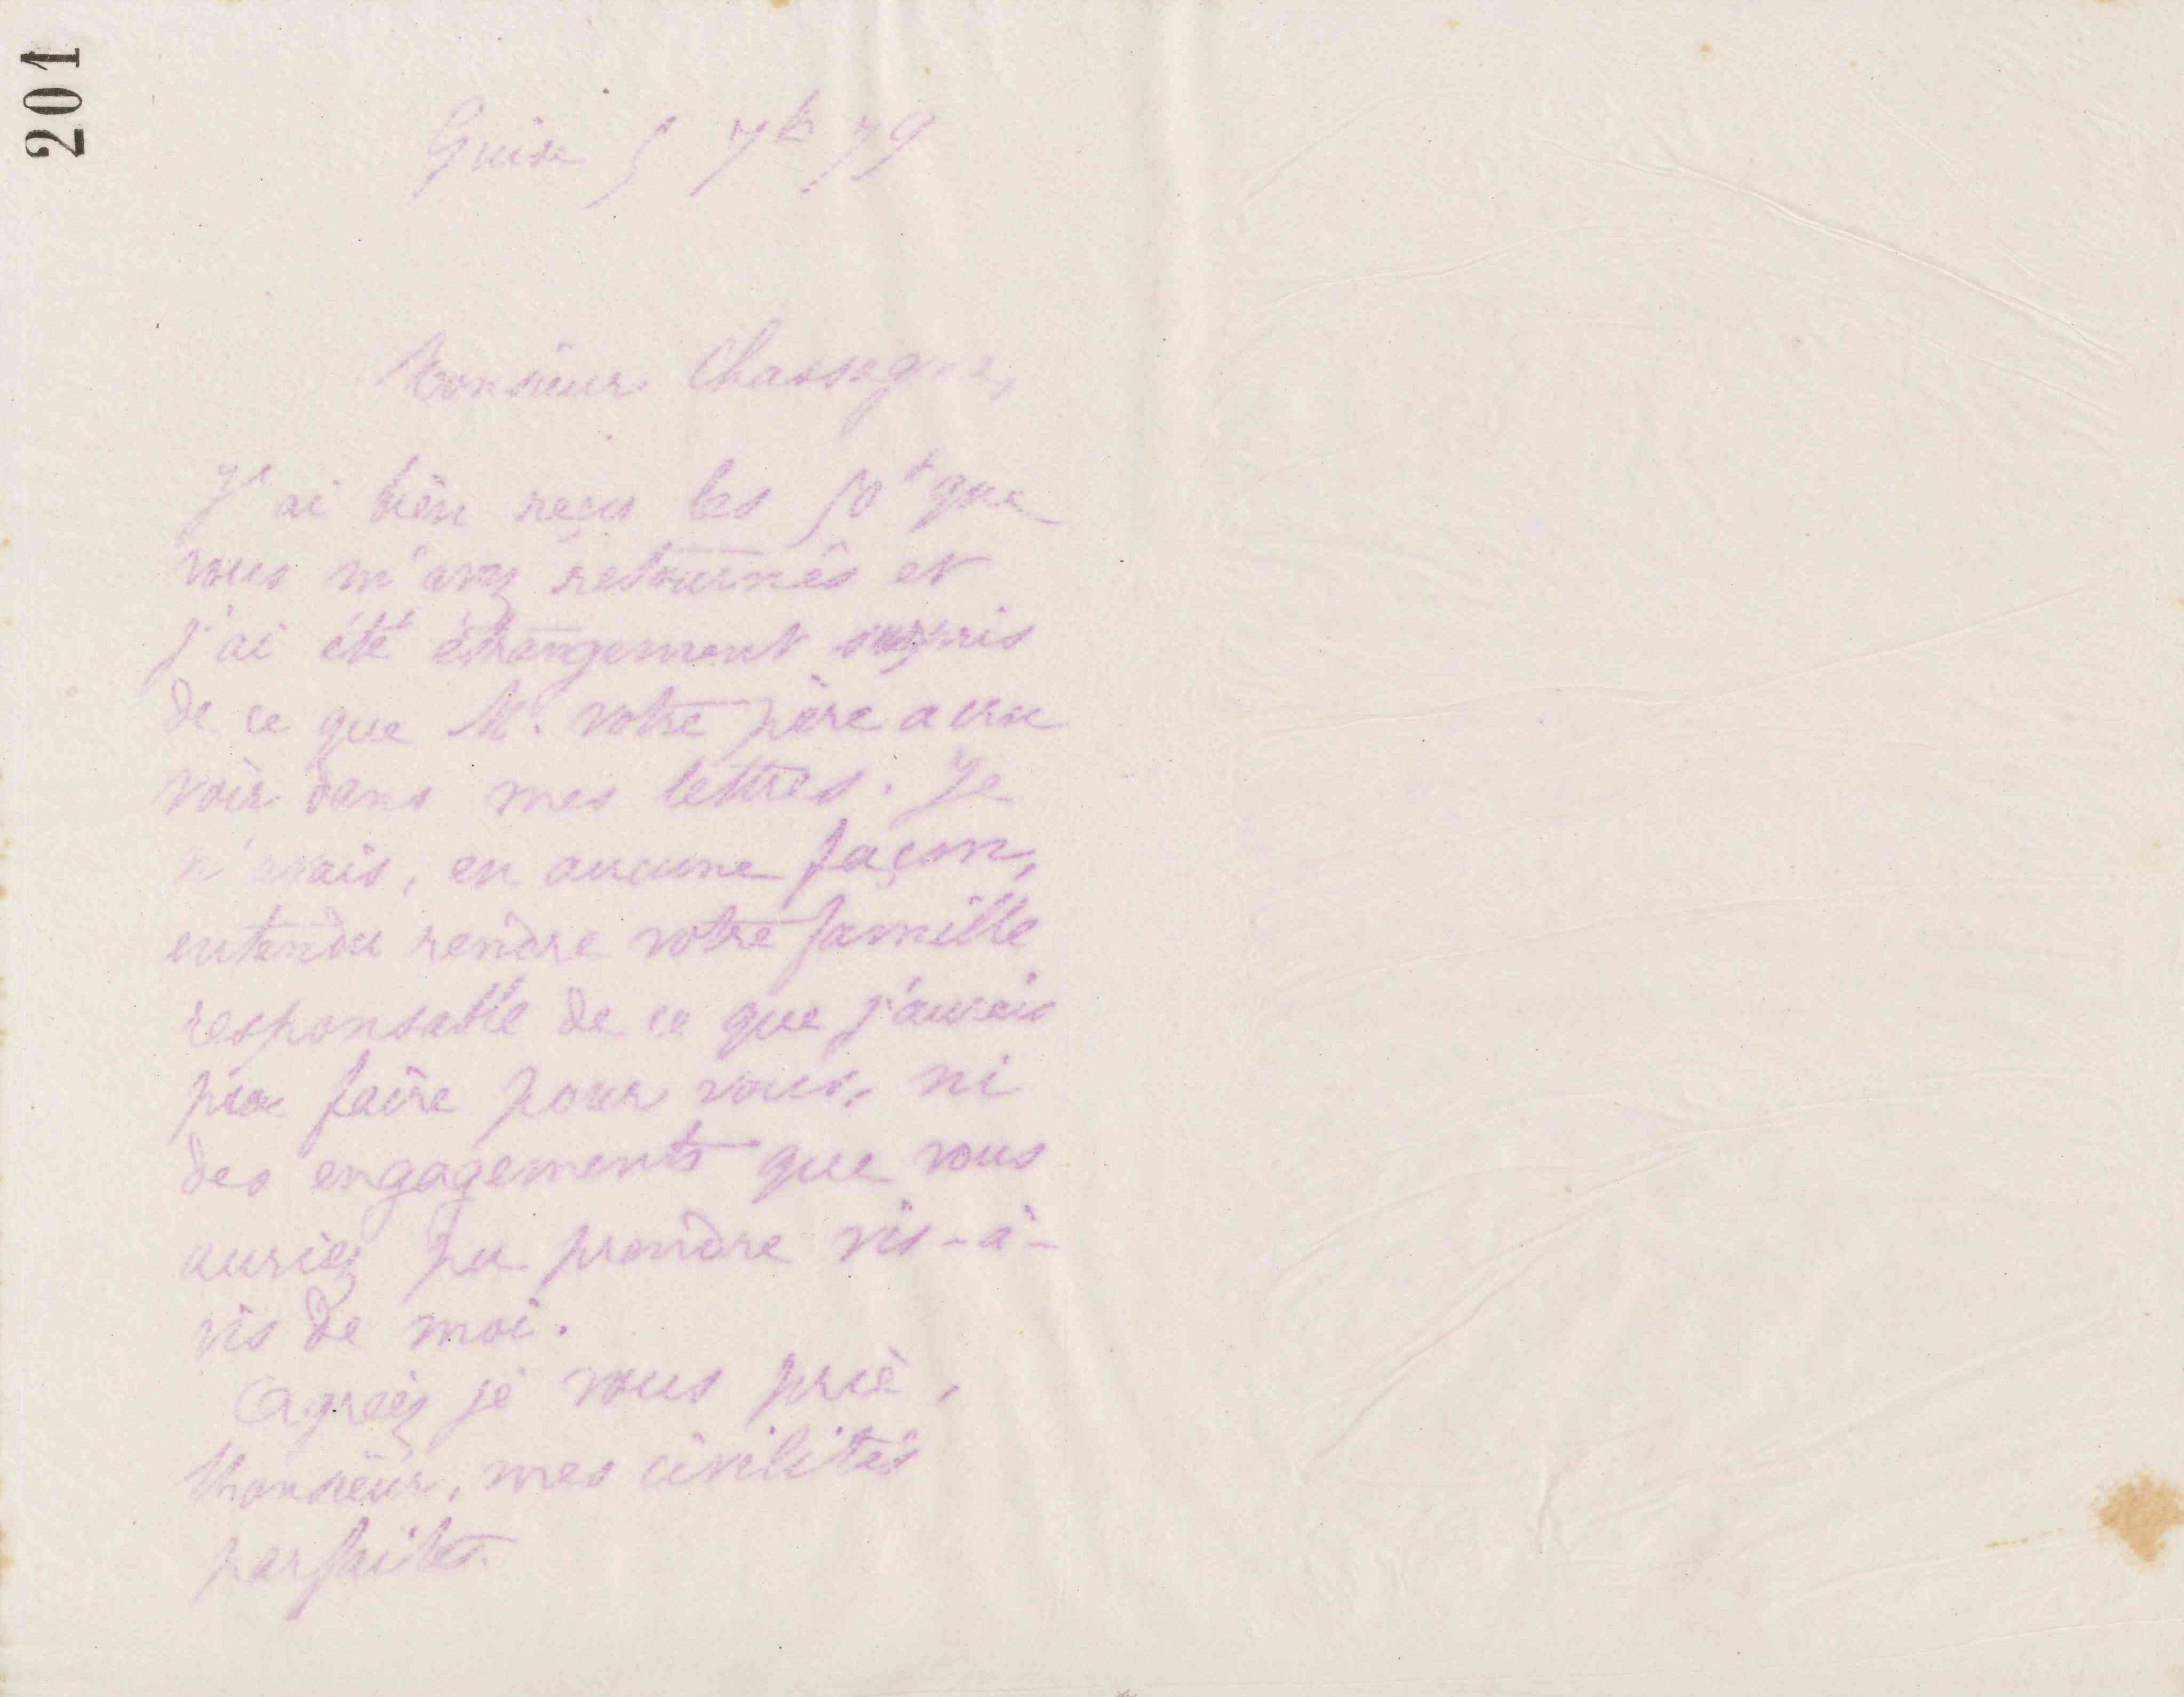 201
Guise 5 7bre 79
Monsieur Chassagne,
J'ai bien reçu les 50f que
vous m'avez retournés et
j'ai été étrangement surpris
de ce que M. votre père a cru
voir dans mes lettres. Je
n'avais, en aucune façon,
entendu rendre votre famille
responsable de ce que j'aurais
pu faire pour vous, ni
des engagements que vous
auriez pu prendre vis-à-
vis de moi.
Agréez je vous prie,
Monsieur, mes civilités
parfaites.